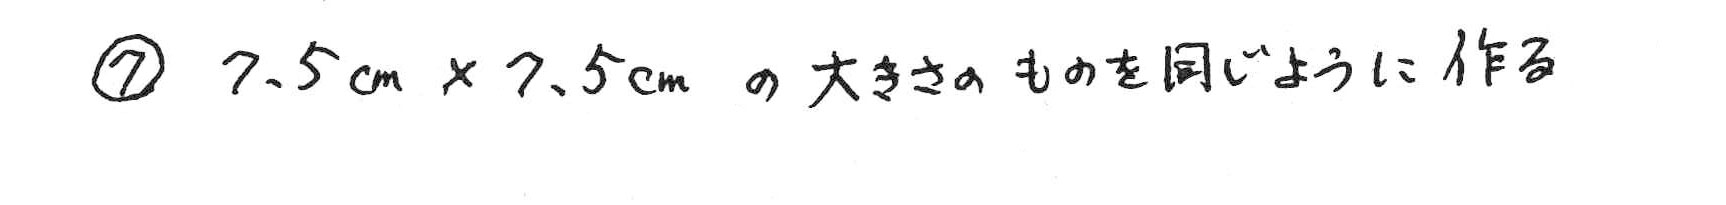 ⑦ 7.5cm×7.5cmの大きさのものを同じように作る